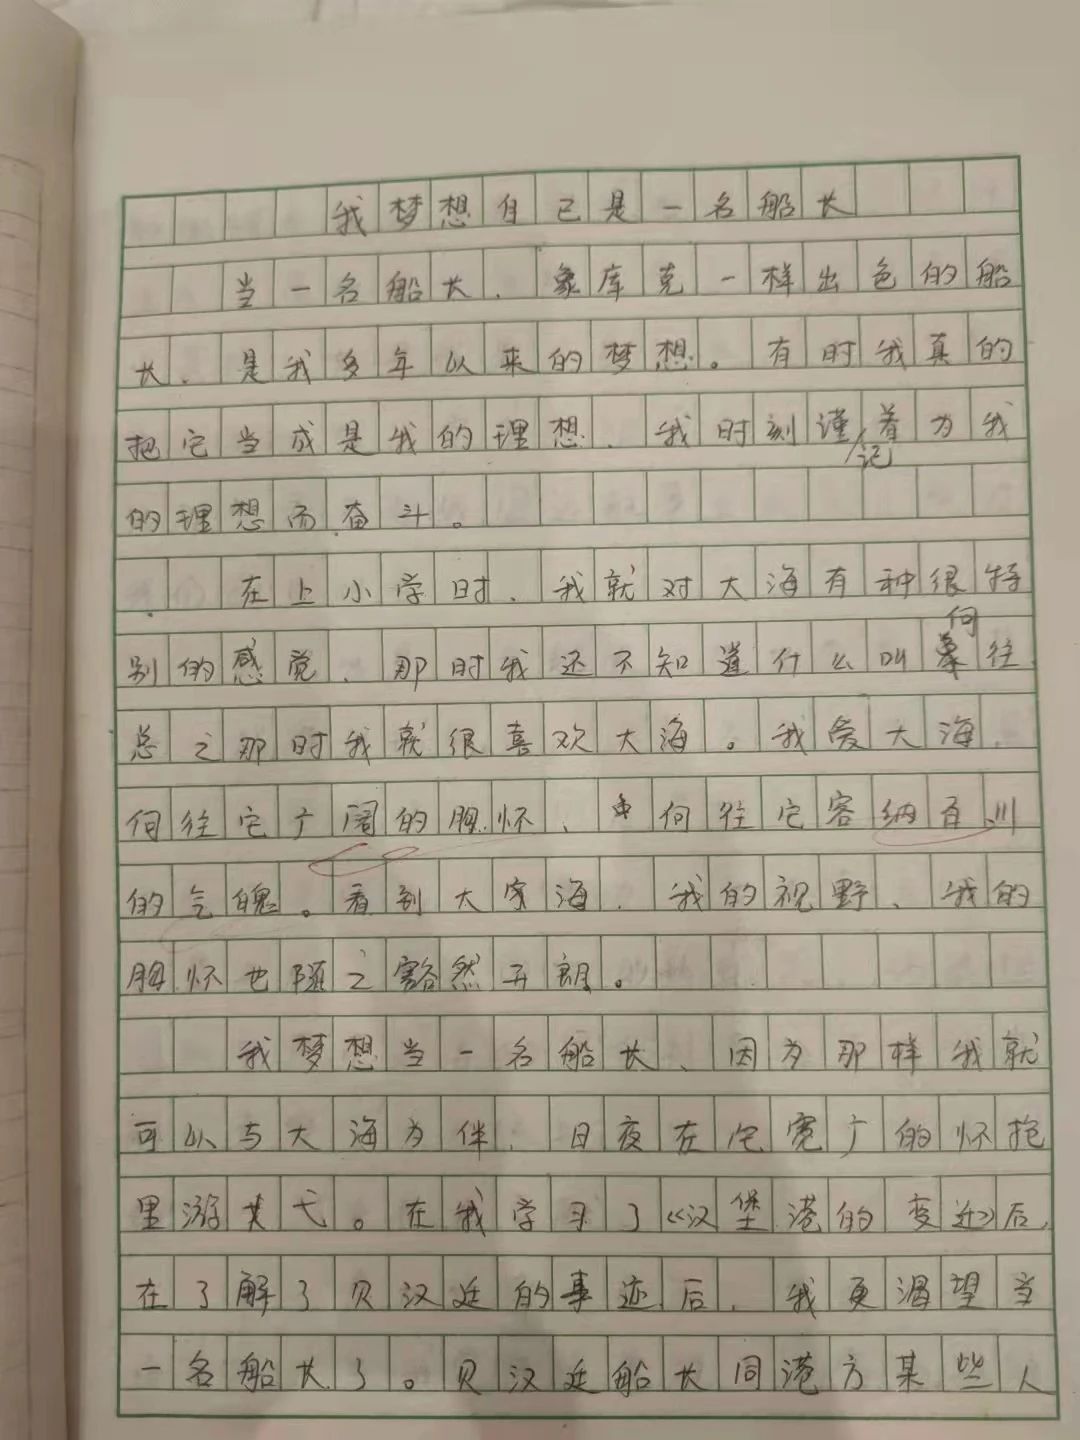 我梦想自己是一名船长
当一名船长，象库克一样出色的船
长，是我多年以来的梦想。有时我真的
把它当成是我的理想，我时刻谨记着为我
的理想而奋斗。
在上小学时，我就对大海有种很特
别的感觉，那时我还不知道什么叫向往
总之那时我就很喜欢大海。我爱大海，
向往它广阔的胸怀、向往它容纳百川
的气魄。看到大家海，我的视野、我的
胸怀也随之豁然开朗。
我梦想当一名船长，因为那样我就
可以与大海为伴，日夜在它宽广的怀抱
里游其弋。在我学习了《汉堡港的变迁》后，
在了解了贝汉廷的事迹后，我更渴望当
一名船长了。贝汉廷船长同港方某些人